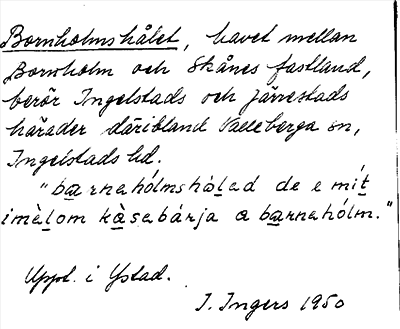 Bornholmshålet, havet mellan
Bornholm och Skånes fastland,
berör Ingelstads och Järrestads
härader däribland Valleberga sn,
Ingelstads hd.
"ba̲rnahólmshòl̲ad de e mít̲
imèl̲om kà̲sabárja a ba̲rnahólm."
Uppt. i Ystad.
I. Ingers 1950